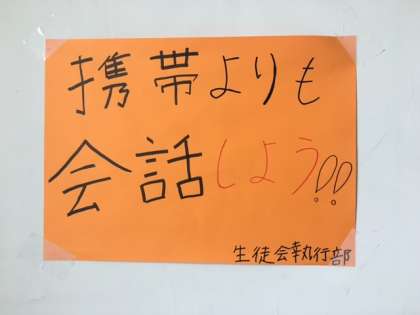 携帯よりも
会話しよう!!
生徒会執行部